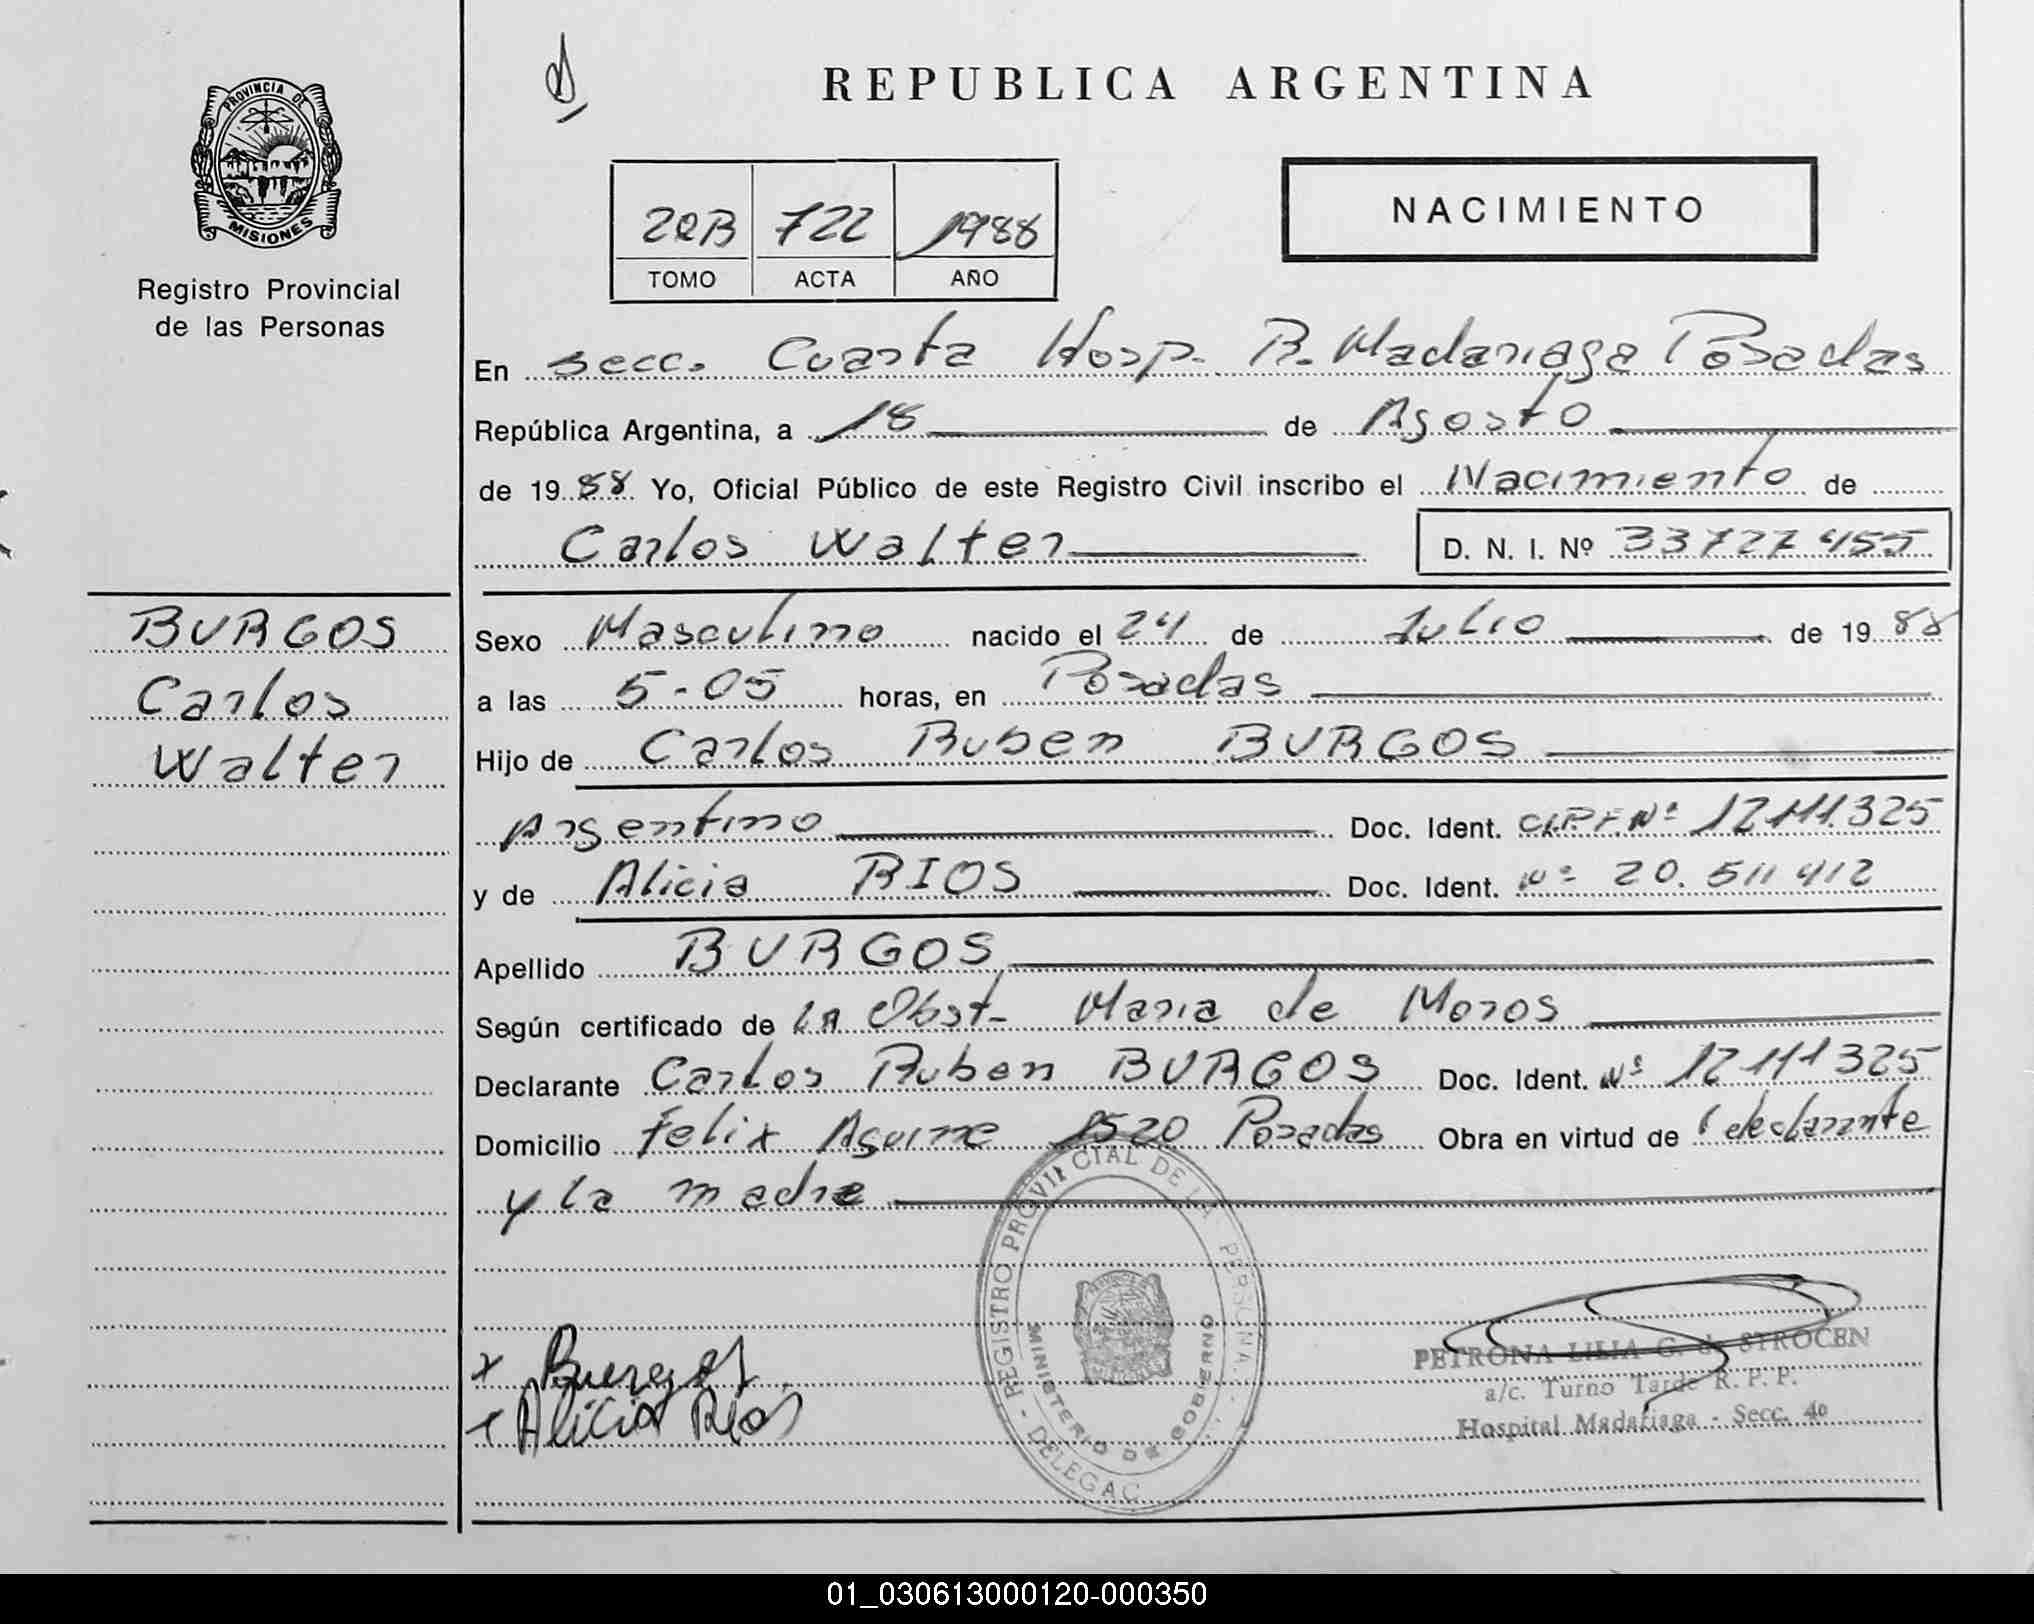 REPUBLICA ARGENTINA
PROVINCIA DE
MISIONES
Registro Provincial
de las Personas
722 1988
TOMO ACTA AÑO
NACIMIENTO
En secc. Cuarta Hosp. R. Madariaga Posadas
República Argentina, a 18 de Agosto
de 1988 Yo, Oficial Público de este Registro Civil inscribo el Nacimiento de
Carlos Walter D. N. I. Nº 33727455
BURGOS
Carlos
Walter
Sexo Masculino nacido el 24 de Julio de 1988
a las 5-05 horas, en Posadas
Hijo de Carlos Ruben BURGOS
Argentino Doc. Ident. Nº 12111.325
y de Alicia RIOS Doc. Ident. Nº 20.511412
Apellido BURGOS
Según certificado de La Obst. Maria de Moros
Declarante Carlos Ruben BURGOS Doc. Ident. Nº 12111325
Domicilio Felix Aguirre 1520 Posadas Obra en virtud de declarante
y la madre
REGISTRO PROVINCIAL DE LA PERSONA
MINISTERIO DE GOBIERNO
DELEGAC
x Burgos
x Alicia Rios
PETRONA LILIA G. de STROCEN
a/c. Turno Tarde R. P. P.
Hospital Madariaga - Secc. 4º
01_030613000120-000350